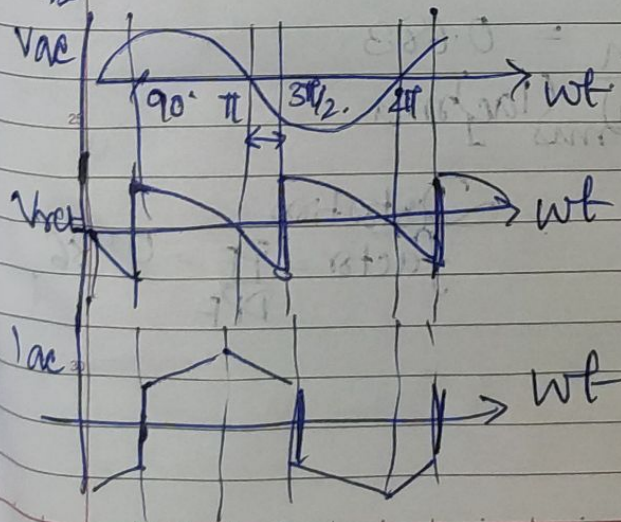 Vac
90° π 3π/2. 2π wt
Vrect wt
Iac wt